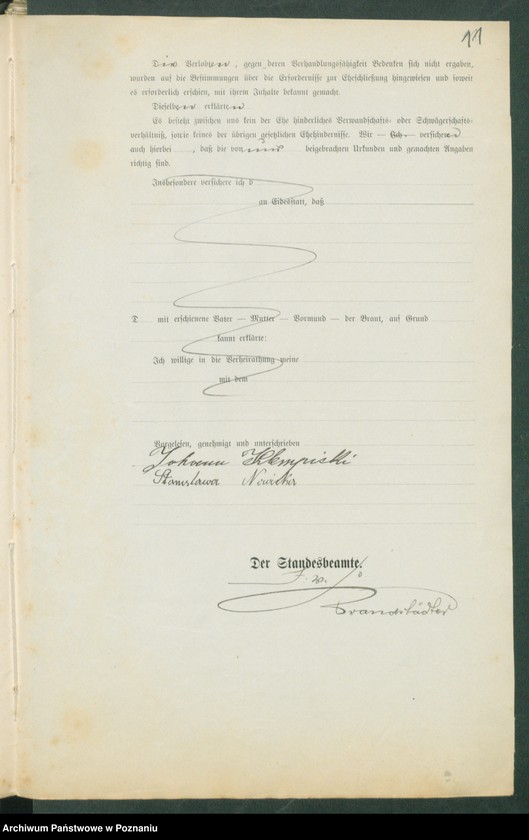 11
Die Verlobten, gegen deren Verhandlungsfähigkeit Bedenken sich nicht ergaben,
wurden auf die Bestimmungen über die Erfordernisse zur Eheschließung hingewiesen und soweit
es erforderlich erschien, mit ihrem Inhalte bekannt gemacht.
Dieselben erklärten
Es besteht zwischen uns kein der Ehe hinderliches Verwandschafts- oder Schwägerschafts-
verhältniß, sowie keines der übrigen gesetzlichen Ehehindernisse. Wir — Ich — versichern
auch hierbei, daß die von uns beigebrachten Urkunden und gemachten Angaben
richtig sind.
Insbesondere versichere ich d
an Eidesstatt, daß
D mit erschienene Vater — Mutter — Vormund — der Braut, auf Grund
kannt erklärte:
Ich willige in die Verheirathung meine
mit dem
Vorgelesen, genehmigt und unterschrieben
Johann
Stanislawa
Der Standesbeamte.
Brandstädter
Archiwum Państwowe w Poznaniu